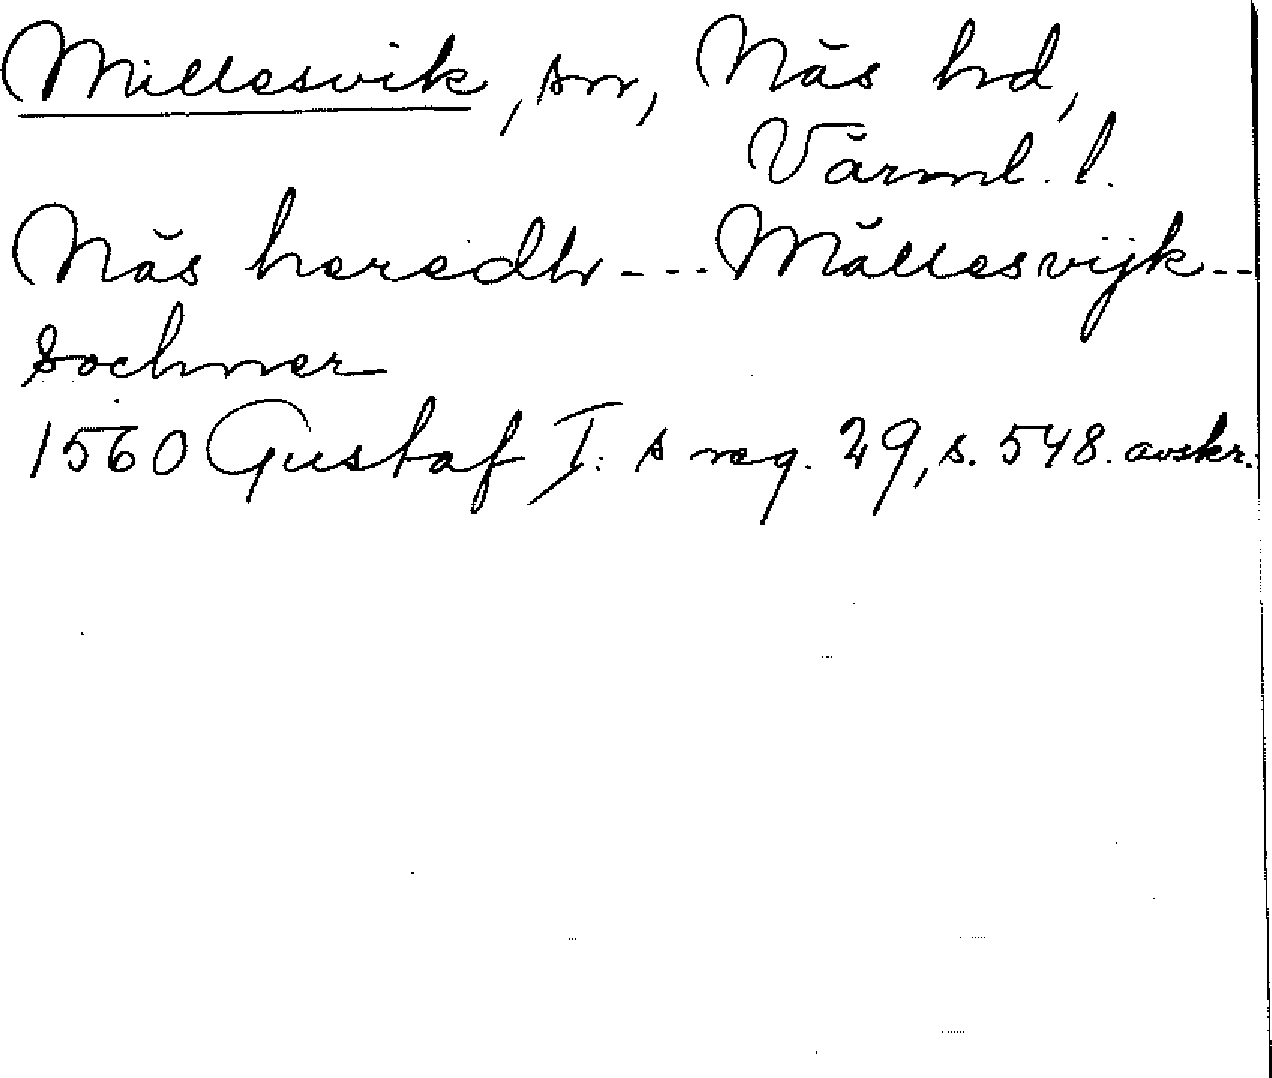 Millesvik, sn, Näs hd,
Värml. l.
Näs heredh --- Mällesvijk --
Sochner
1560 Gustaf I:s reg. 29, s. 548. avskr.